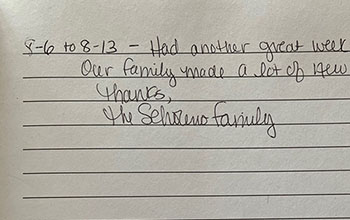 8-6 to 8-13 - Had another great week
Our family made a lot of new
Thanks,
The Family